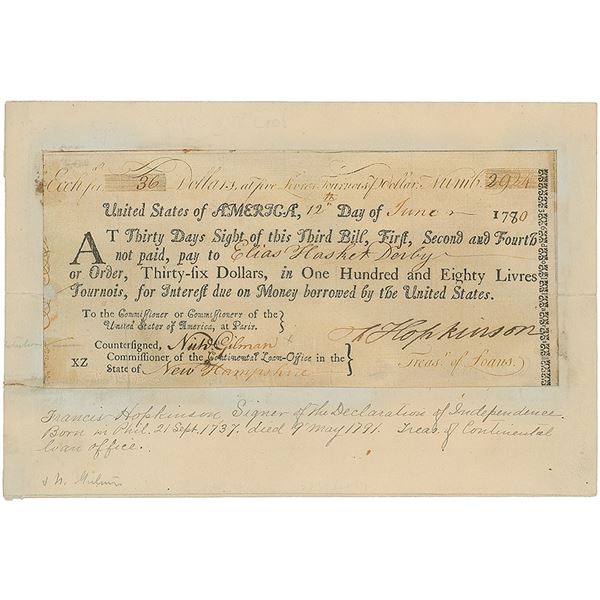 Exch. for 36 Dollars, at five Livres Tournois ⅌ Dollar. Numb. 292
United States of AMERICA, 12th Day of June 1780
AT Thirty Days Sight of this Third Bill, First, Second and Fourth
not paid, pay to Elias Hasket Derby
or Order, Thirty-six Dollars, in One Hundred and Eighty Livres
Tournois, for Interest due on Money borrowed by the United States.
To the Commissioner or Commissioners of the
United States of America, at Paris.
Fs Hopkinson
Countersigned, Nichs Gilman
XZ Commissioner of the Continental Loan-Office in the
State of New Hampshire
Treasr. of Loans.
Francis Hopkinson, Signer of the Declaration of Independence.
Born in Phil. 21 Sept. 1737. died 9 May 1791. Treas. of Continental
loan office.